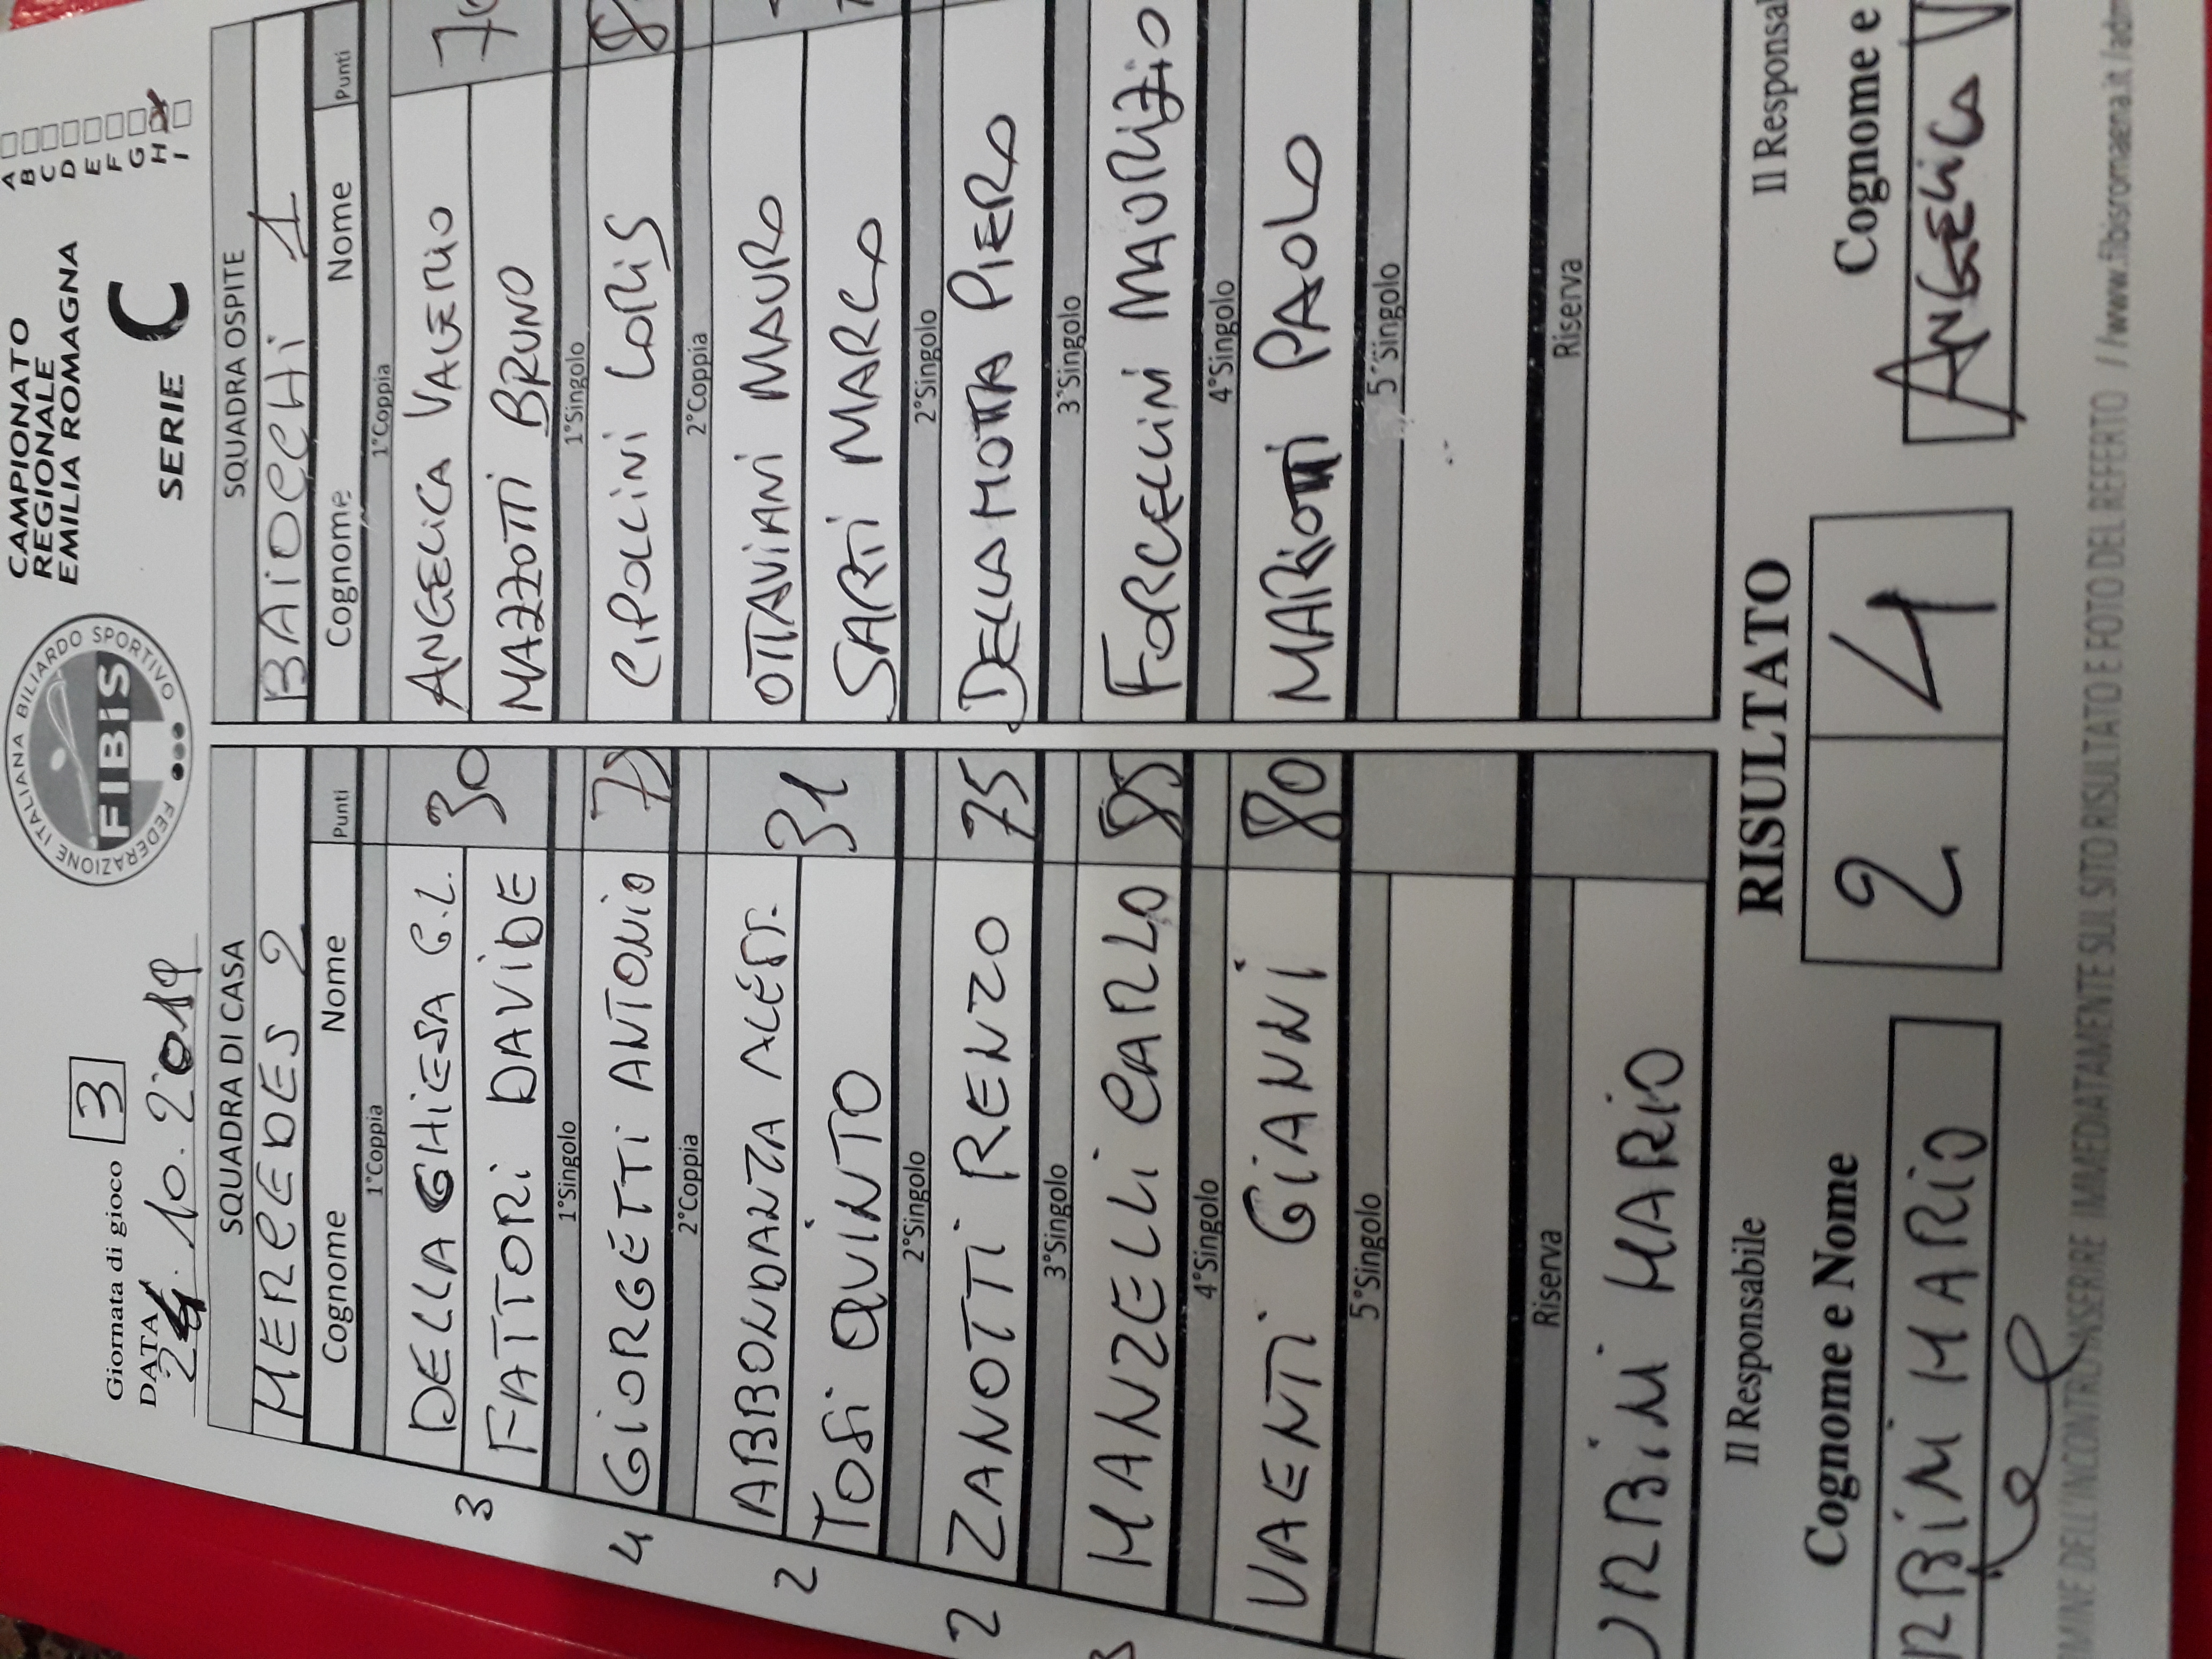 Giornata di gioco 3
DATA 24.10.2019
FEDERAZIONE ITALIANA BILIARDO SPORTIVO
FIBiS
CAMPIONATO
REGIONALE
EMILIA ROMAGNA
SERIE C
A
B
C
D
E
F
G
H
I
SQUADRA DI CASA
MERCEDES 2
Cognome Nome Punti
1°Coppia
DELLA GHIESA G.L. 30
FATTORI DAVIDE
1°Singolo
GIORGETTI ANTONIO
2°Coppia
ABBONDANZA ALESS. 31
TOSI QUINTO
2°Singolo
ZANOTTI RENZO 75
3°Singolo
MANZELLI CARLO 85
4°Singolo
VAENTI GIANNI 80
5°Singolo
Riserva
URBINI MARIO
3
4
2
2
3
SQUADRA OSPITE
BAIOCCHI 1
Cognome Nome Punti
1°Coppia
ANGELICA VALERIO
MAZZOTTI BRUNO
1°Singolo
CIPOLLINI LORIS
2°Coppia
OTTAVIANI MAURO
SARTI MARCO
2°Singolo
DELLAMOTTA PIERO
3°Singolo
FORCELLINI MAURIZIO
4°Singolo
MARIOTTI PAOLO
5°Singolo
Riserva
Il Responsabile
Cognome e Nome
RBINI MARIO
RISULTATO
2 4
Il Responsal
Cognome e
ANGELICA V
RMINE DELL'INCONTRO INSERIRE IMMEDIATAMENTE SUL SITO RISULTATO E FOTO DEL REFERTO //www.fibisromaena.it/adm